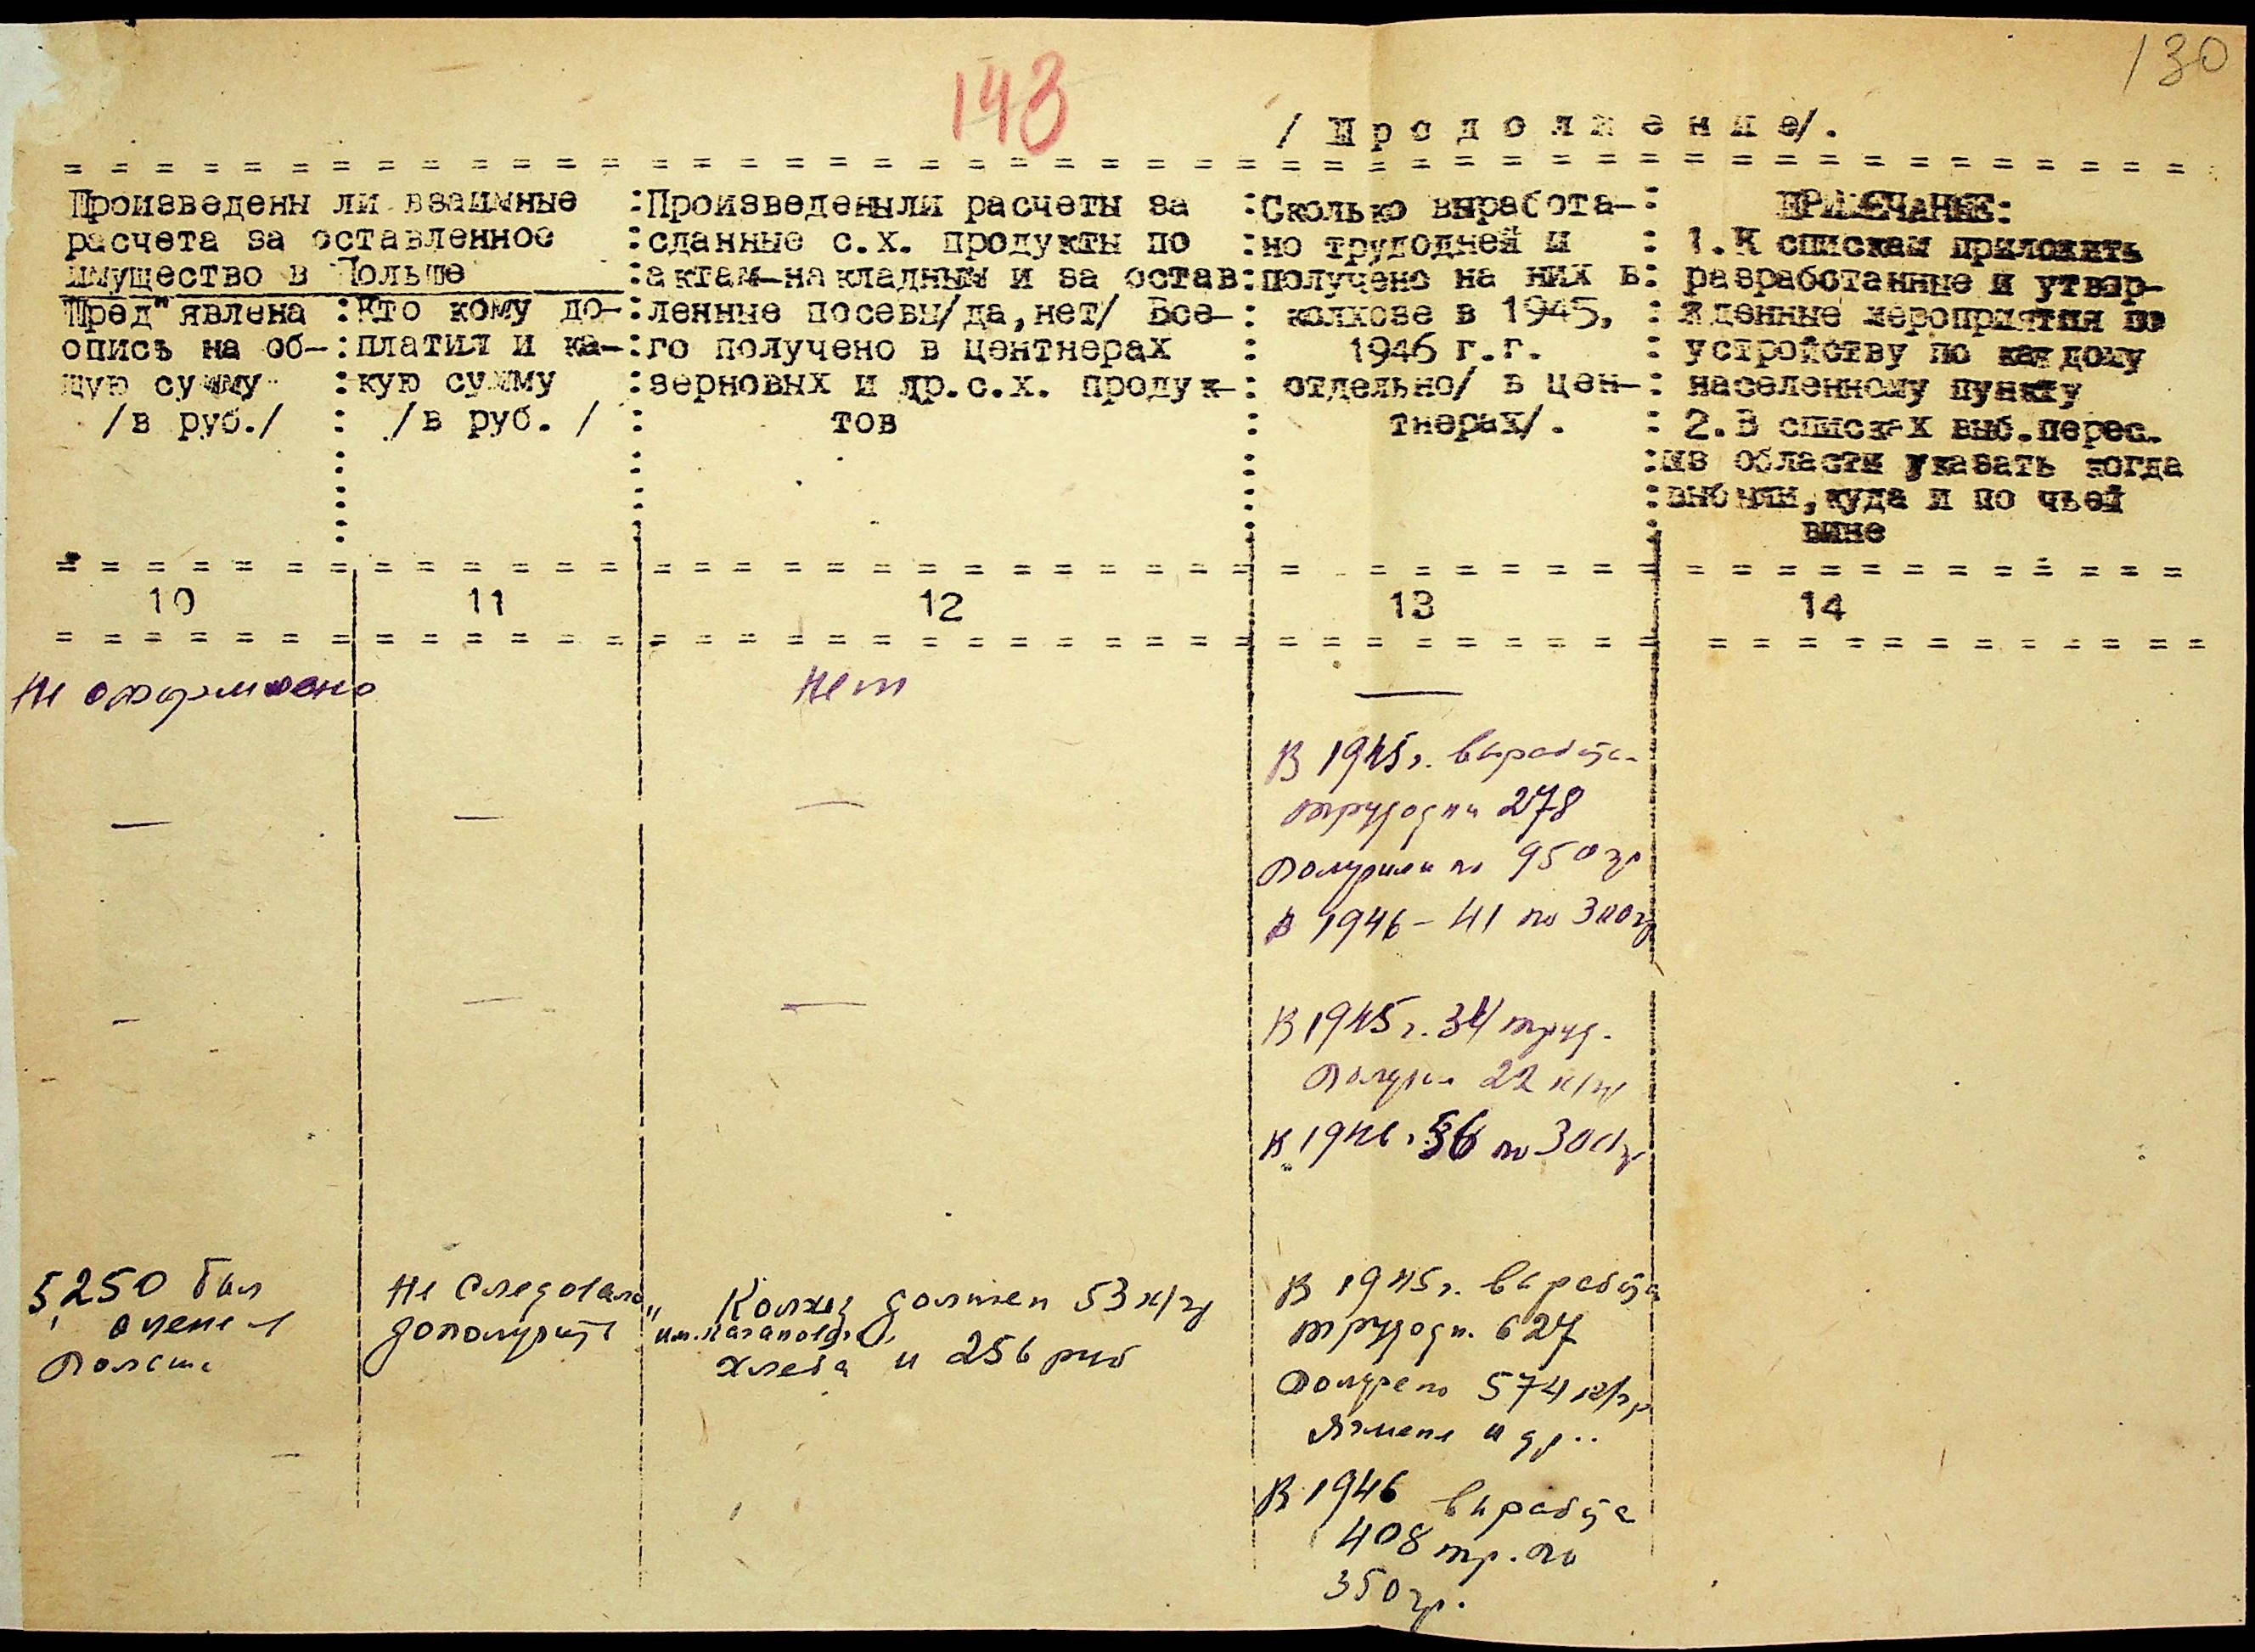 130
143
/ П р о д о л ж е н и е/.
Произведены ли взаимные
расчета за оставленное
имущество в Польше
Пред"явлена
опись на об-
щую сумму
/в руб./
Кто кому до-
платил и ка-
кую сумму
/в руб. /
Произведены ли расчеты за
сданные с.х. продукты по
актам-накладным и за остав
ленные посевы/да,нет/ Все-
го получено в центнерах
зерновых и др.с.х. продук-
тов
Сколько выработа-
но трудодней и
получено на них в
колхозе в 1945,
1946 г.г.
отдельно/ в цен-
тнерах/.
ПРИМЕЧАНИЕ:
1.К спискам приложить
разработанные и утвер-
жденные мероприятия по
устройству по каждому
населенному пункту
2.В списках выб.перес.
из области указать когда
выбыли,куда и по чьей
вине
10 11 12 13 14
Не оформлено
Нет
—
— — —
В 1945 г. выработа-
трудодни 278
Получили по 950 гр
В 1946 – 41 по 300 гр
— — —
В 1945 г. 34 труд.
Получил 22 к/гр
В 1946 г. 36 по 300 гр
5,250 был
оценен
Польши
Не следовало
дополучить
Колхоз должен 53 к/гр
"им. Кагановича"
хлеба и 256 руб
В 1945 г. выработа
трудодн. 627
Получено 574 к/гр
Ячменя и др..
В 1946 выработа
408 тр. по
350 гр.